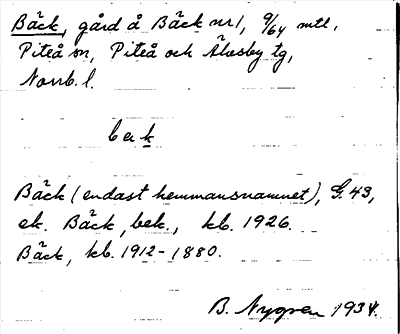 Bäck, gård å Bäck nr 1, 9/64 mtl,
Piteå sn, Piteå och Älvsby tg,
Norrb. l.
bek
Bäck (endast hemmansnamnet), G. 43,
ek. Bäck, bek., kb. 1926.
Bäck, kb. 1912-1880.
B. Nygren 1934.